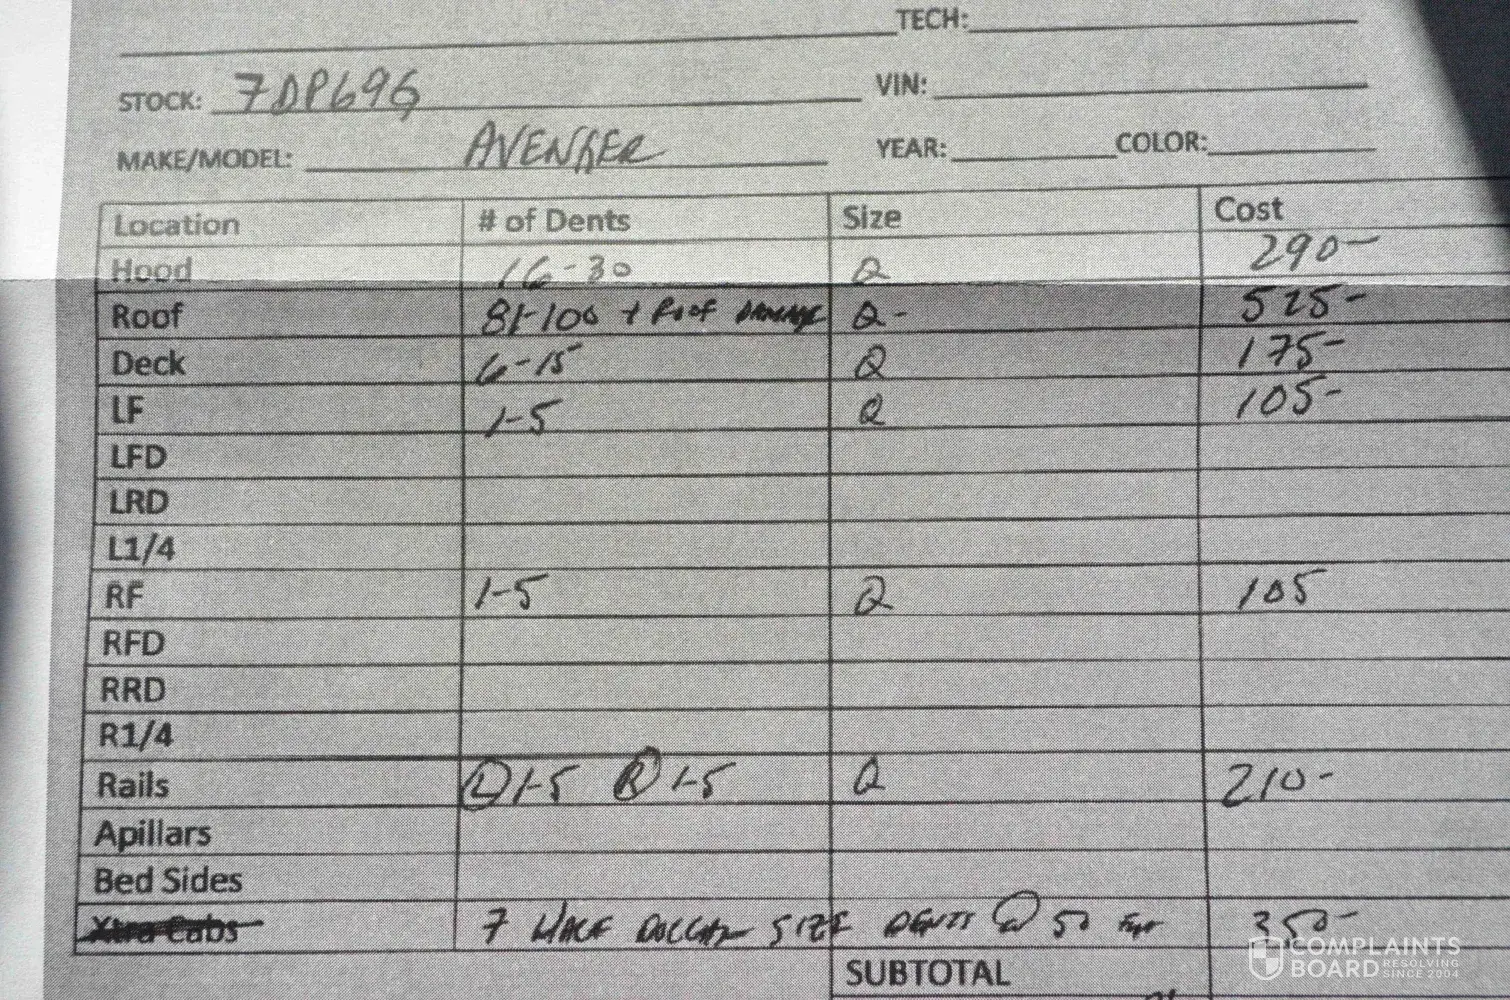 TECH:
STOCK: 7DP696 VIN:
MAKE/MODEL: AVENGER YEAR: COLOR:
Location # of Dents Size Cost
Hood 16-30 Q 290-
Roof 81-100 + Roof DAMAGE Q - 525-
Deck 6-15 Q 175-
LF 1-5 Q 105-
LFD
LRD
L1/4
RF 1-5 Q 105
RFD
RRD
R1/4
Rails L 1-5 R 1-5 Q 210-
Apillars
Bed Sides
Xtra Cabs 7 HALF DOLLAR SIZE DENTS @ 50 350-
SUBTOTAL
COMPLAINTS
BOARD RESOLVING
SINCE 2004